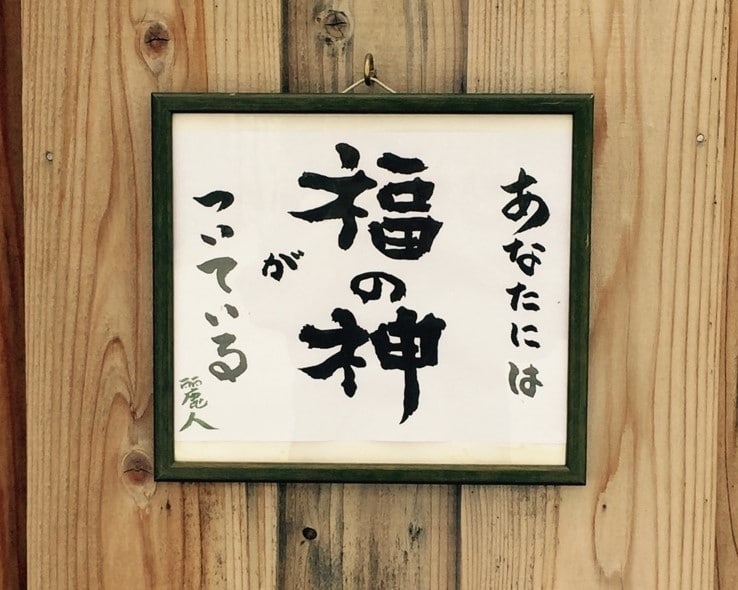 あなたには
福の神
が
ついている
麗人